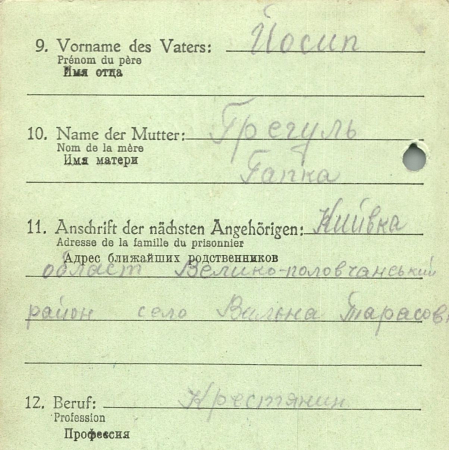 9. Vorname des Vaters: Йосип
Prénom du père
Имя отца
10. Name der Mutter: Грегуль
Nom de la mère
Имя матери
Гапка
11. Anschrift der nächsten Angehörigen: Київка
Adresse de la famille du prisonnier
Адрес ближайших родственников
област Велико-половчанський
район село Вильна Тарасов
12. Beruf: Крестянин
Profession
Профессия